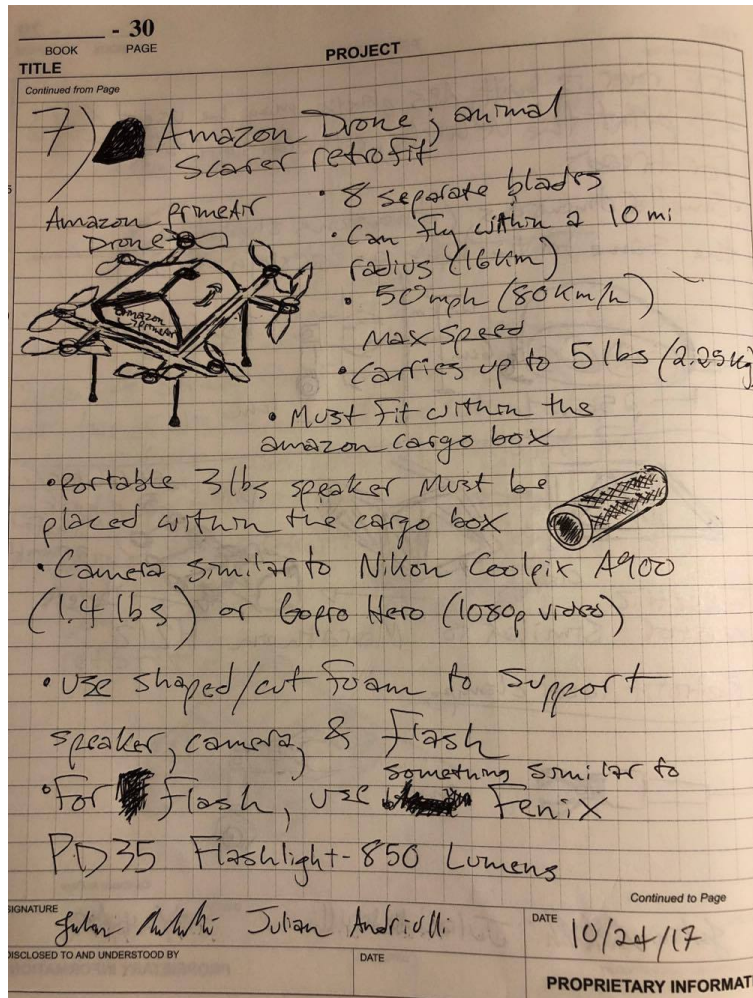 - 30
BOOK PAGE
PROJECT
TITLE
Continued from Page
7) Amazon Drone; animal
Scarer retrofit
Amazon PrimeAir
Drone
amazon
primeAir
• 8 separate blades
• Can fly within a 10 mi
radius (16Km)
• 50mph (80Km/h)
Max speed
• Carries up to 5 lbs (2.25kg)
• Must fit within the
amazon cargo box
• Portable 3 lbs speaker must be
placed within the cargo box
• Camera similar to Nikon Coolpix A900
(1.4 lbs) or Gopro Hero (1080p video)
• Use shaped/cut foam to support
speaker, camera, & Flash
• For Flash, use something similar to Fenix
PD35 Flashlight - 850 Lumens
Continued to Page
SIGNATURE
Julian Andriulli
DATE
10/24/17
DISCLOSED TO AND UNDERSTOOD BY
DATE
PROPRIETARY INFORMAT